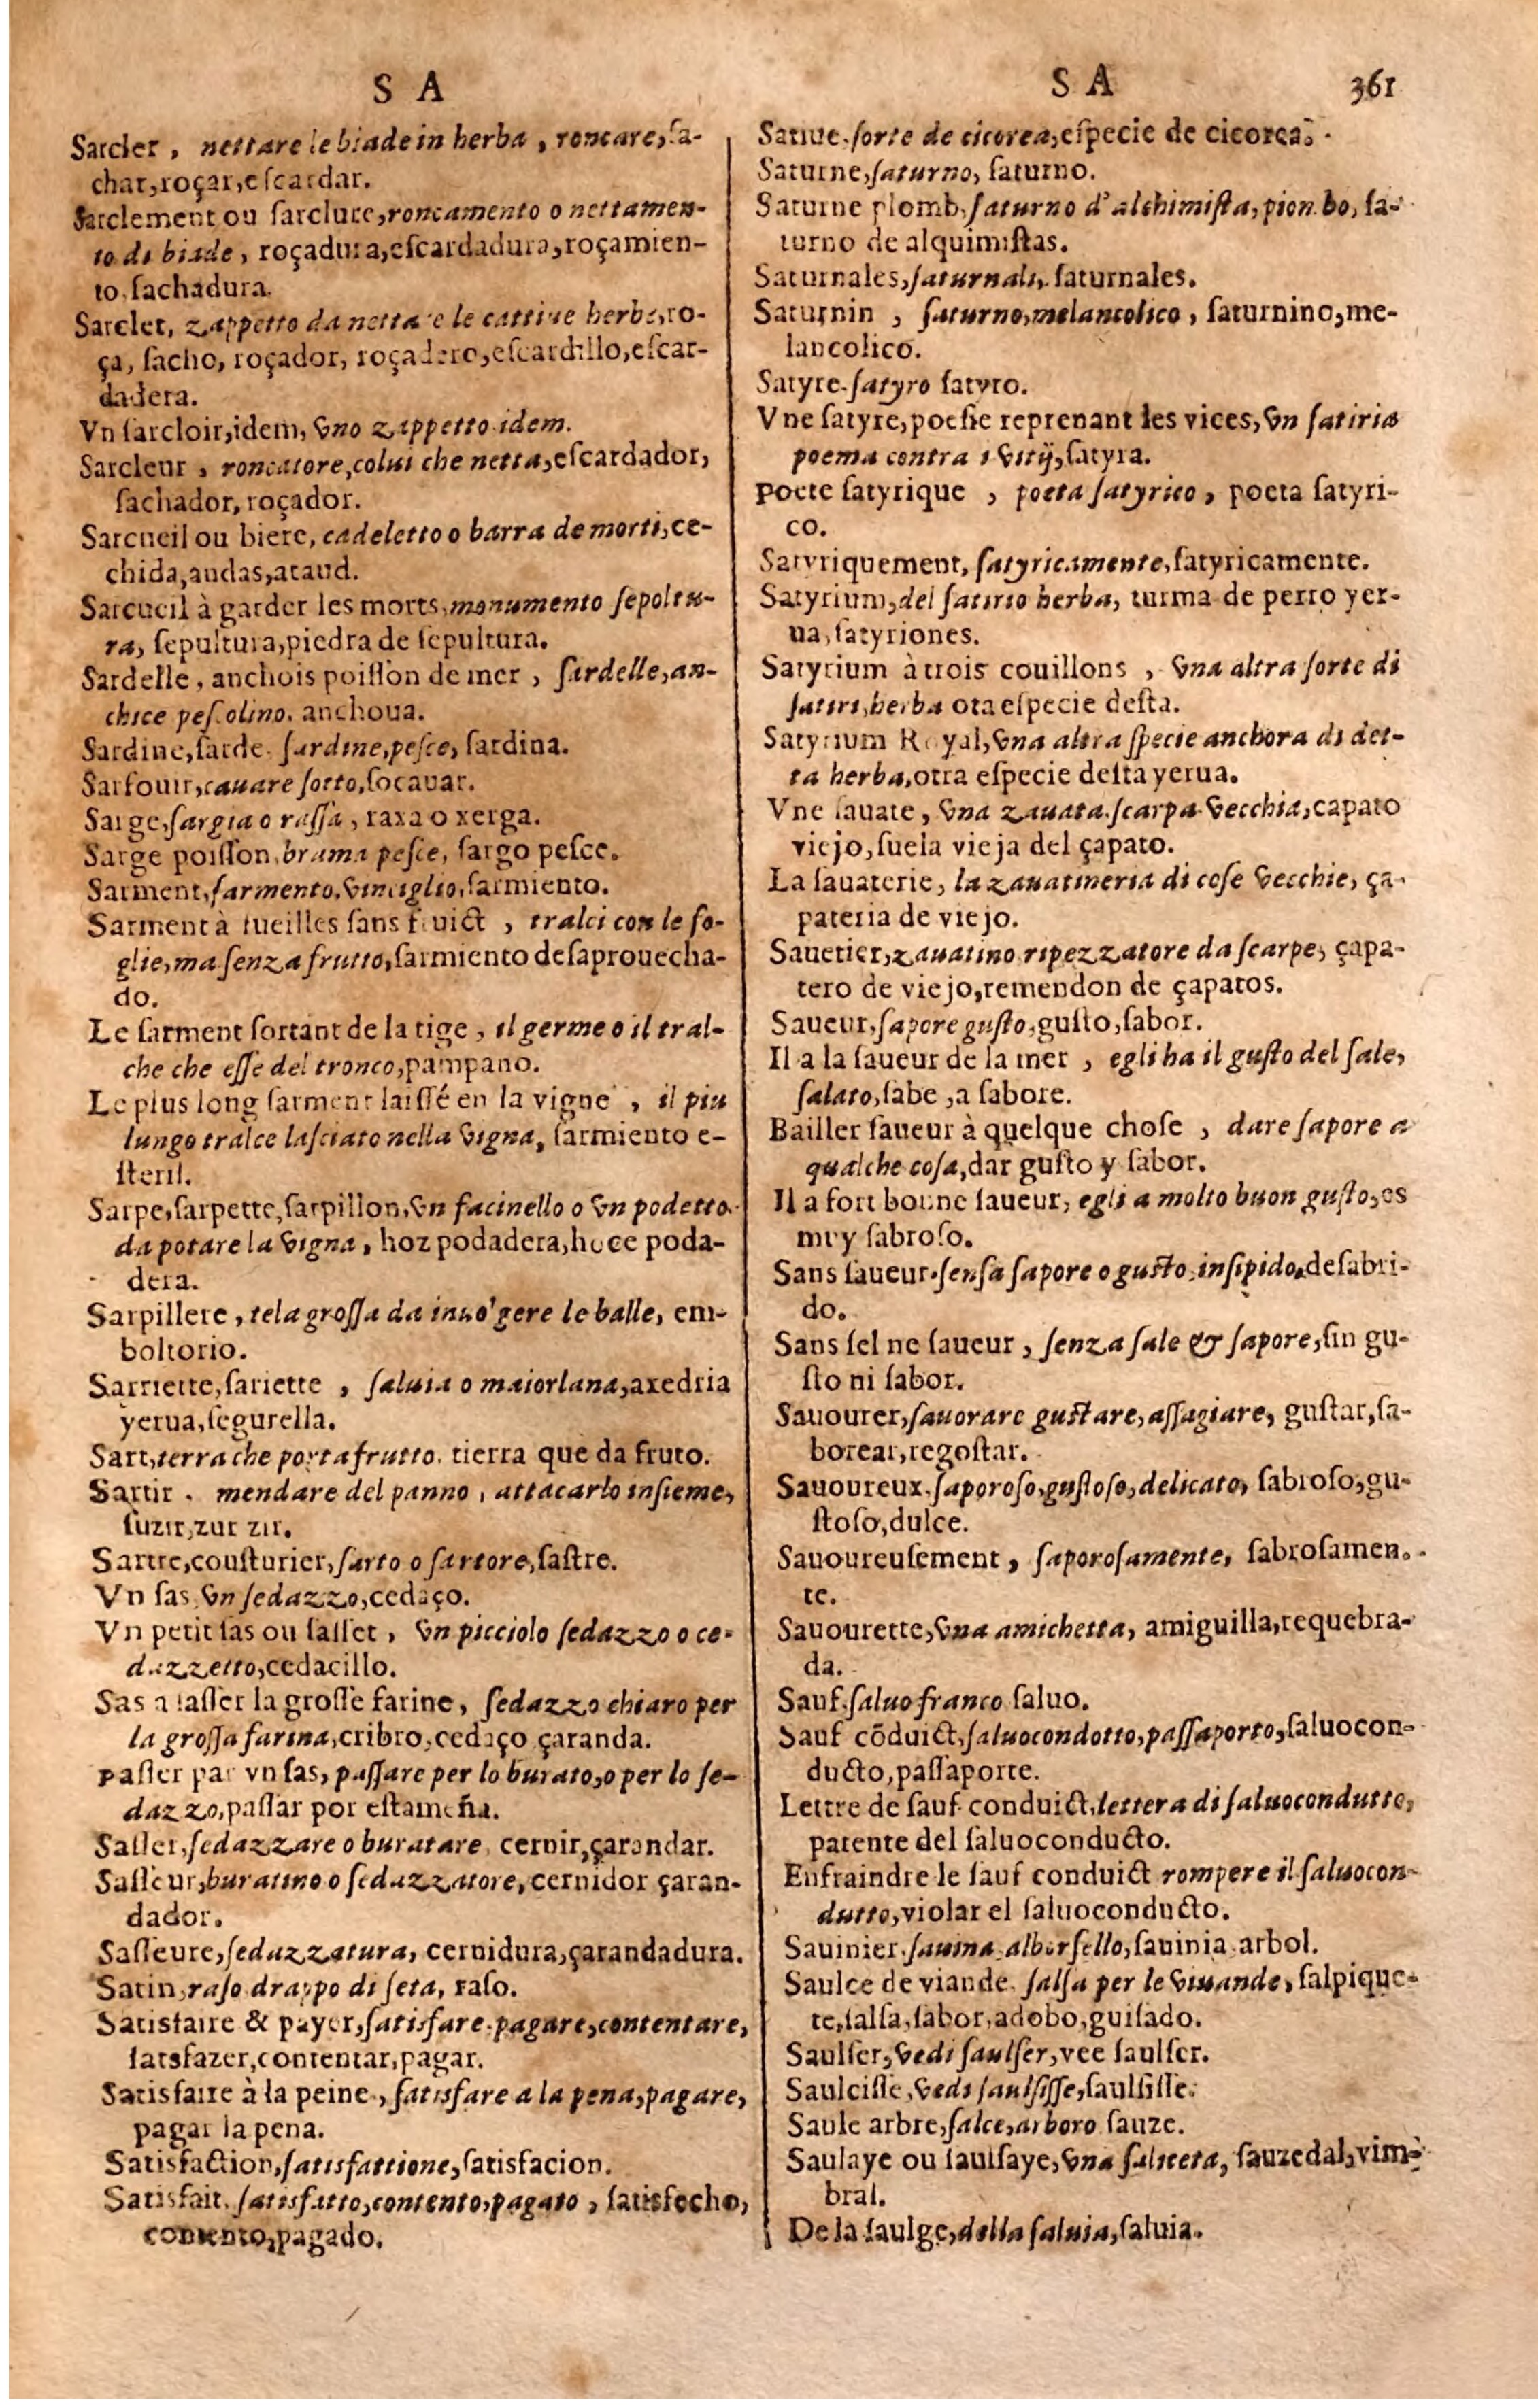 S A
Sarcler, nettare le biade in herba, roncare, ſa-
char, roçar, eſcardar.
Sarclement ou ſarclure, roncamento o nettamen-
to di biade, roçadura, eſcardadura, roçamien-
to, ſachadura.
Sarclet, zappetto da nettare le cattiue herbe, ro-
ça, ſacho, roçador, roçadero, eſcardillo, eſcar-
dadera.
Vn ſarcloir, idem, vno zappetto idem.
Sarcleur, roncatore, colui che netta, eſcardador,
ſachador, roçador.
Sarcueil ou biere, cadeletto o barra de morti, ce-
chida, andas, ataud.
Sarcueil à garder les morts, monumento ſepoltu-
ra, ſepultura, piedra de ſepultura.
Sardelle, anchois poiſſon de mer, ſardelle, an-
chice peſcolino. anchoua.
Sardine, ſarde. ſardine, peſce, ſardina.
Sarfouir, cauare ſotto, ſocauar.
Sarge, ſargia o raſſa, raxa o xerga.
Sarge poiſſon, brama peſce, ſargo peſce.
Sarment, ſarmento, vinciglio, ſarmiento.
Sarment à fueilles ſans fruict, tralci con le fo-
glie, ma ſenza frutto, ſarmiento deſaprouecha-
do.
Le ſarment ſortant de la tige, il germe o il tral-
che che eſſe del tronco, pampano.
Le plus long ſarment laiſſé en la vigne, il piu
lungo tralce laſciato nella vigna, ſarmiento e-
ſteril.
Sarpe, ſarpette, ſarpillon, vn facinello o vn podetto
da potare la vigna, hoz podadera, hoce poda-
dera.
Sarpillere, tela groſſa da inuo'gere le balle, em-
boltorio.
Sarriette, ſariette, ſaluia o maiorlana, axedria
yerua, ſegurella.
Sart, terra che porta frutto. tierra que da fruto.
Sartir. mendare del panno, attacarlo inſieme,
ſuzir, zur zir.
Sartre, couſturier, ſarto o ſartore, ſaſtre.
Vn ſas, vn ſedazzo, cedaço.
Vn petit ſas ou ſaſſet, vn picciolo ſedazzo o ce-
dazzetto, cedacillo.
Sas a ſaſſer la groſſe farine, ſedazzo chiaro per
la groſſa farina, cribro, cedaço çaranda.
Paſſer par vn ſas, paſſare per lo burato, o per lo ſe-
dazzo, paſſar por eſtameña.
Saſſer, ſedazzare o buratare, cernir, çarandar.
Saſſeur, buratino o ſedazzatore, cernidor çaran-
dador.
Saſſeure, ſedazzatura, cernidura, çarandadura.
Satin, raſo drappo di ſeta, raſo.
Satisfaire & payer, ſatisfare. pagare, contentare,
ſatsfazer, contentar, pagar.
Satisfaire à la peine, ſatisfare a la pena, pagare,
pagar la pena.
Satisfaction, ſatisfattione, ſatisfacion.
Satisfait. ſatisfatto, contento, pagato, ſatisfecho,
contento, pagado.
S A 361
Satiue, ſorte de cicorea, eſpecie de cicorea.
Saturne, ſaturno, ſaturno.
Saturne plomb, ſaturno d'alchimiſta, piombo, ſa-
turno de alquimiſtas.
Saturnales, ſaturnali, ſaturnales.
Saturnin, ſaturno, melancolico, ſaturnino, me-
lancolico.
Satyre. ſatyro ſatyro.
Vne ſatyre, poeſie reprenant les vices, vn ſatiria
poema contra i vitij, ſatyra.
Poete ſatyrique, poeta ſatyrico, poeta ſatyri-
co.
Satyriquement, ſatyricamente, ſatyricamente.
Satyrium, del ſatirio herba, turma de perro yer-
ua, ſatyriones.
Satyrium à trois couillons, vna altra ſorte di
ſatiri, herba ota eſpecie deſta.
Satyrium Royal, vna altra ſpecie anchora di det-
ta herba, otra eſpecie deſta yerua.
Vne ſauate, vna zauata. ſcarpa vecchia, capato
viejo, ſuela vieja del çapato.
La ſauaterie, la zauatineria di coſe vecchie, ça-
pateria de viejo.
Sauetier, zauatino ripezzatore da ſcarpe, çapa-
tero de viejo, remendon de çapatos.
Saueur, ſapore guſto, guſto, ſabor.
Il a la ſaueur de la mer, egli ha il guſto del ſale,
ſalato, ſabe, a ſabore.
Bailler ſaueur à quelque choſe, dare ſapore a
qualche coſa, dar guſto y ſabor.
Il a fort bonne ſaueur, egli a molto buon guſto, es
muy ſabroſo.
Sans ſaueur. ſenſa ſapore o guſto, inſipido, deſabri-
do.
Sans ſel ne ſaueur, ſenza ſale & ſapore, ſin gu-
ſto ni ſabor.
Sauourer, ſauorare guſtare, aſſagiare, guſtar, ſa-
borear, regoſtar.
Sauoureux. ſaporoſo, guſtoſo, delicato, ſabroſo, gu-
ſtoſo, dulce.
Sauoureuſement, ſaporoſamente, ſabroſamen-
te.
Sauourette, vna amichetta, amiguilla, requebra-
da.
Sauf, ſaluo franco ſaluo.
Sauf cōduict, ſaluocondotto, paſſaporto, ſaluocon-
ducto, paſſaporte.
Lettre de ſauf conduict, lettera di ſaluocondutto,
patente del ſaluoconducto.
Enfraindre le ſauf conduict rompere il ſaluocon-
dutto, violar el ſaluoconducto.
Sauinier. ſauina alborſello, ſauinia arbol.
Saulce de viande. ſalſa per le viuande, ſalpique-
te, ſalſa, ſabor, adobo, guiſado.
Saulſer, vedi ſaulſer, vee ſaulſer.
Saulciſſe, vedi ſaulſiſſe, ſaulſiſſe.
Saule arbre, ſalce, arboro ſauze.
Saulaye ou ſaulſaye, vna ſaliceta, ſauzedal, vim-
bral.
De la ſaulge, della ſaluia, ſaluia.